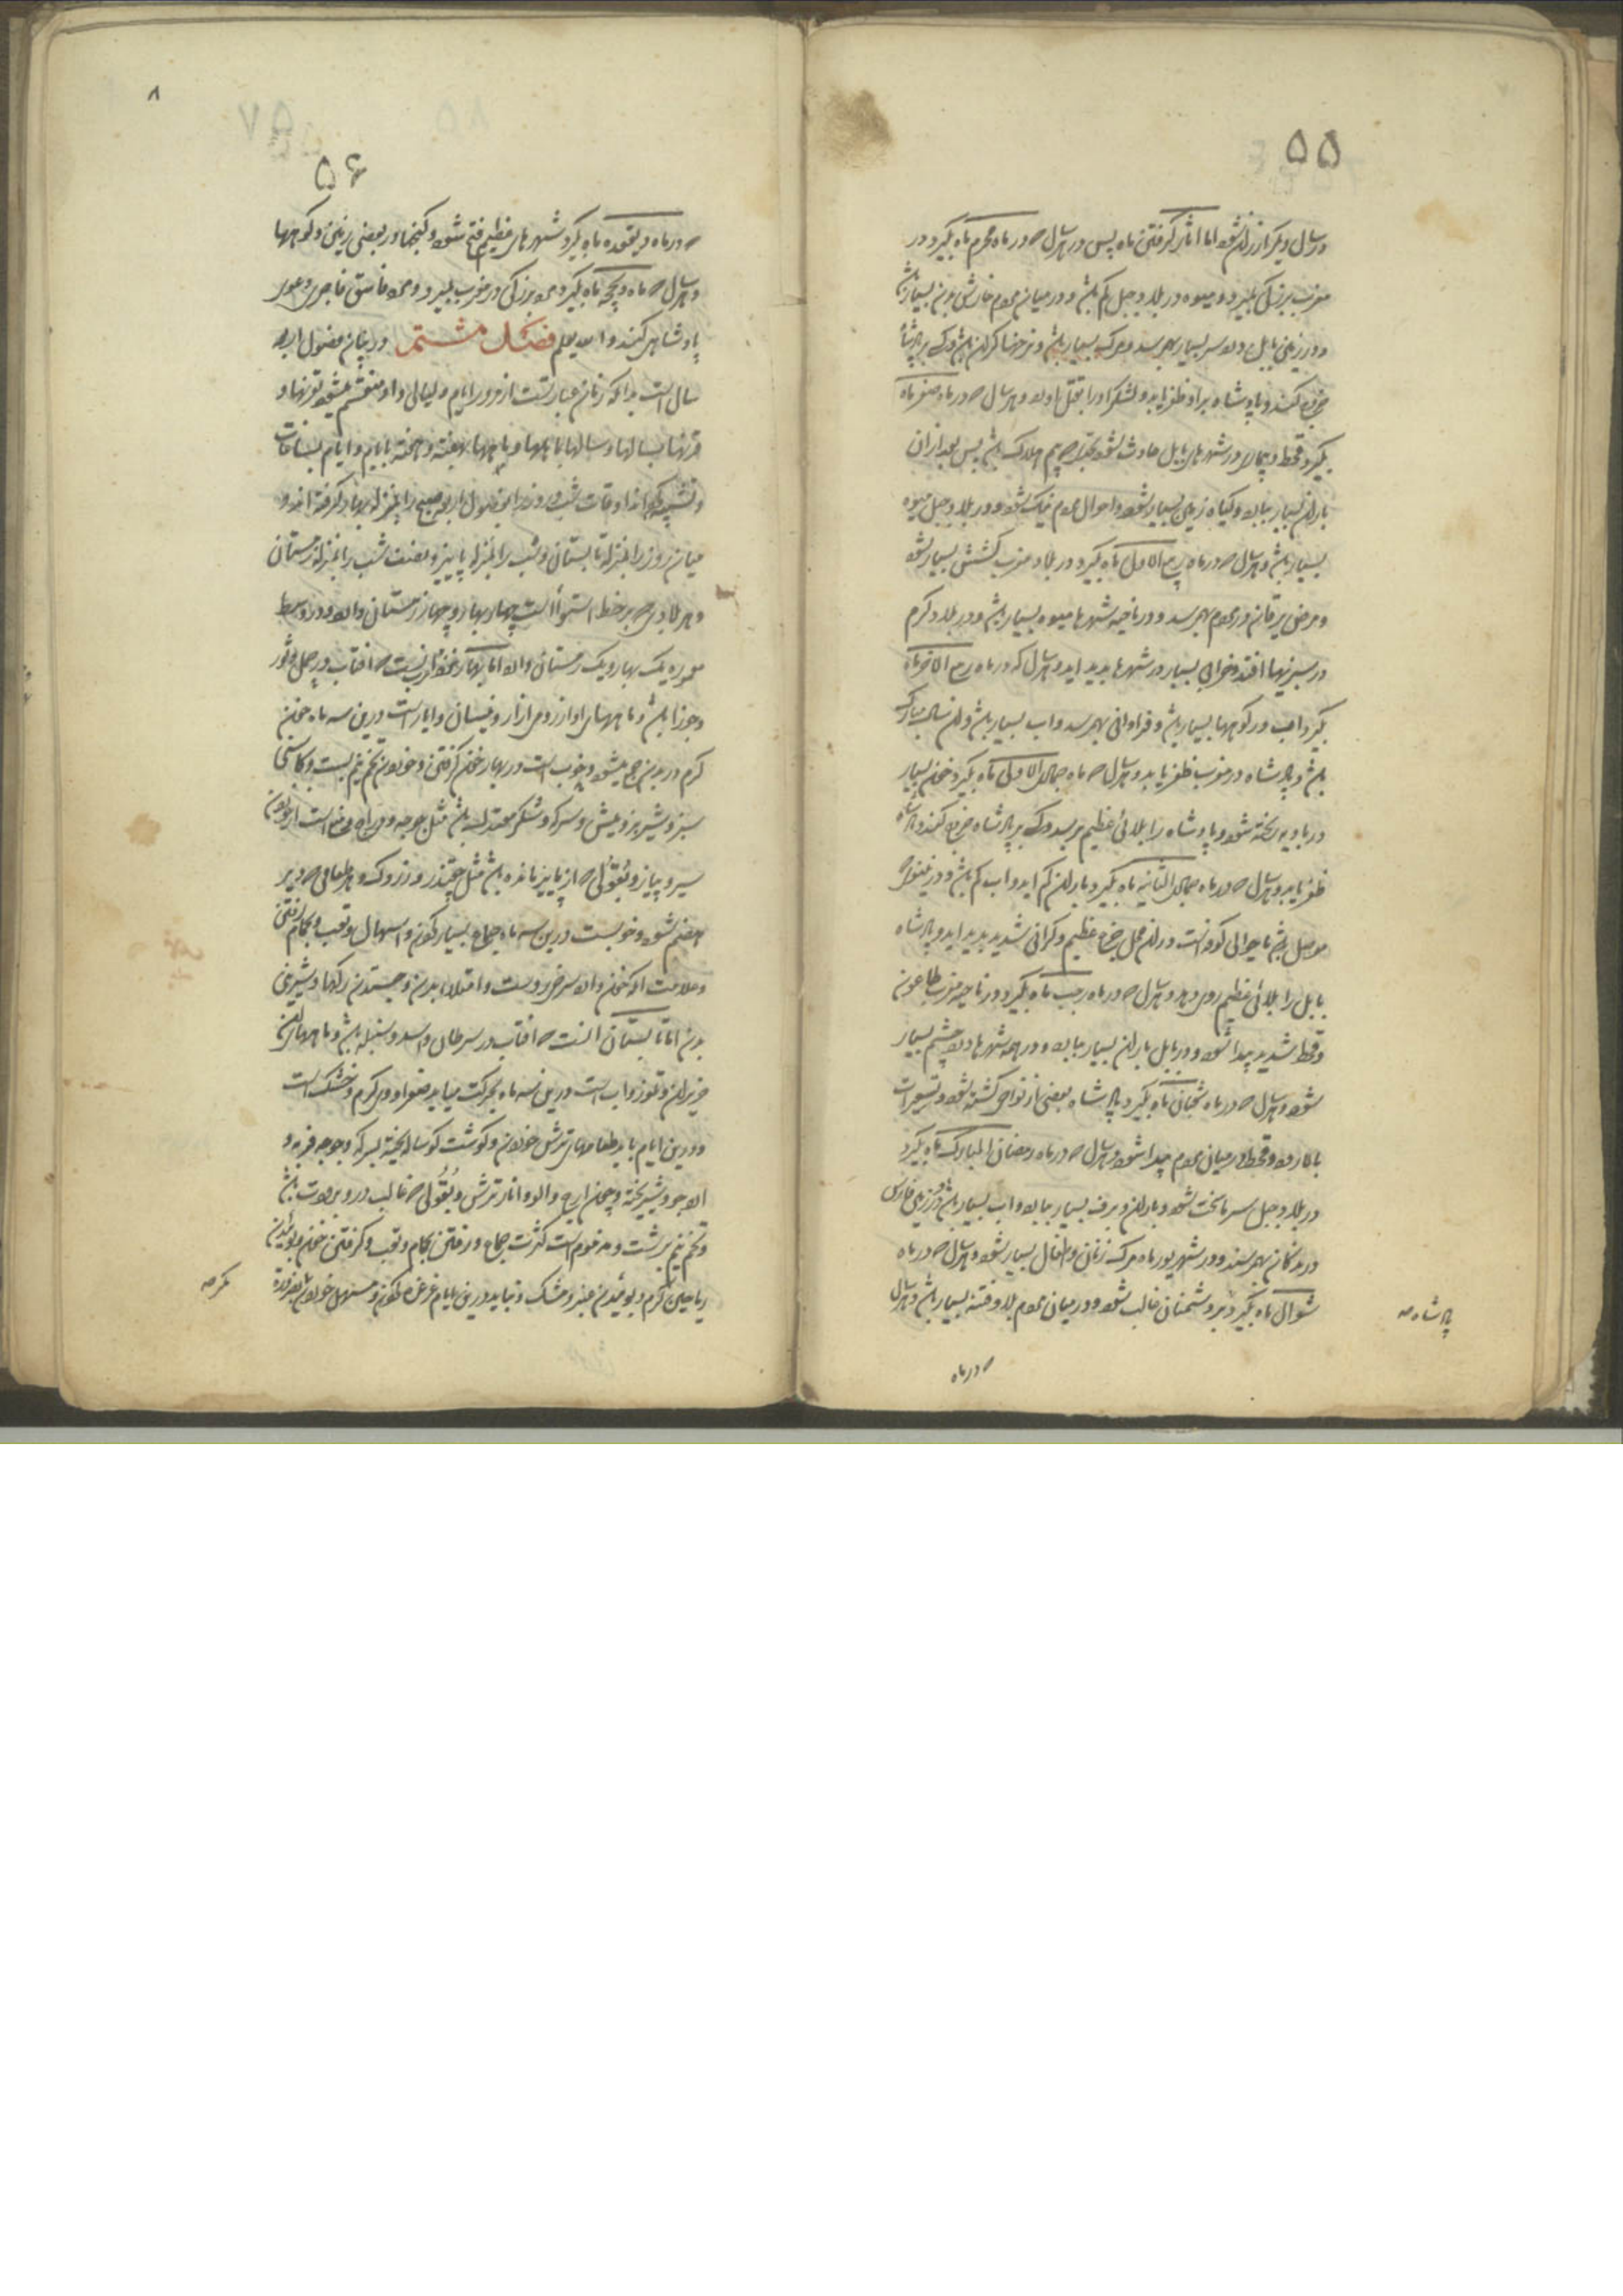 ۵۵
در سال دیگر ارزان شود اما اثار گرفتن ماه پس در هر سال که در ماه محرم ماه بگیرد در
مغرب بزرگی بمیرد و میوه در بلاد جبل کم باشد و در میان مردم خارش بدن بسیار باشد
و در زمین بابل درد سر بسیار بهم رسد و مرگ بسیار باشد و نرخها گران باشد و کسی بر پادشاه
خروج کند و پادشاه بر او ظفر یابد و لشکر او را بقتل اورد و هر سال که در ماه صفر ماه
بگیرد قحط و بیماری در شهرهای بابل حادث شود که بیم هلاک باشد پس بعد از ان
باران بسیار بیاید و گیاه زمین بسیار شود و احوال مردم نیک شود و در بلاد جبل میوه
بسیار باشد و هر سال که در ماه ربیع الاول ماه بگیرد در بلاد مغرب کشش بسیار شود
و مرض یرقان در مردم بهم رسد و در ناحیه شهرها میوه بسیار باشد و در بلاد کرم
در سبزیها افتد و خرابی بسیار در شهرها پدید اید و هر سال که در ماه ربیع الاخر ماه
بگیرد اب در کوهها بسیار باشد و فراوانی بهم رسد و اب بسیار باشد و ان سال مبارک
باشد و پادشاه در مغرب ظفر یابد و هر سال که ماه جمادی الاولی ماه بگیرد خون بسیار
در بادیه ریخته شود و پادشاه را بلائی عظیم برسد و کسی بر پادشاه خروج کند و پادشاه
ظفر یابد و هر سال که در ماه جمادی الثانیه ماه بگیرد باران کم اید و اب کم باشد و در نینوا که
موصل باشد یا حوالی کوفه است در ان محل جزع عظیم و گرانی شدید پدید اید و پادشاه
بابل را بلائی عظیم روی دهد و هر سال که در ماه رجب ماه بگیرد در ناحیه مغرب طاعون
و قحط شدید پیدا شود و در بابل باران بسیار بیاید و در همه شهرها درد چشم بسیار
شود و هر سال که در ماه شعبان ماه بگیرد پادشاه بعضی از نواحی کشته شود و تسعیرات
بالا رود و قحط در میان مردم پیدا شود و هر سال که در ماه رمضان المبارک ماه بگیرد
در بلاد جبل سرما سخت شود و باران و برف بسیار بیاید و اب بسیار باشد و در زمین فارس
درندگان بهم رسند و در شهریور ماه مرگ زنان و اطفال بسیار شود و هر سال که در ماه
شوال ماه بگیرد بر دشمنان غالب شود و در میان مردم بلا و فتنه بسیار باشد و هر سال
پادشاه صه
که در ماه
۸
۵۶
که در ماه ذیقعده ماه بگیرد شهرهای عظیم فتح شود و گنجها در بعضی زمین و کوهها
و هر سال که ماه ذیحجه ماه بگیرد مرد بزرگی در مغرب بمیرد و مرد فاسق فاجری دعوی
پادشاهی کند و الله یعلم فصل مشتمل در بیان فصول اربعه
سال است بدانکه زمان عبارتست از مرور ایام و لیالی و او منقسم میشود بقرنها و
قرنها بسالها و سالها بماهها و ماهها بهفته و هفته بایام و ایام بساعات
و تشبیه کرده اند اوقات شب و روز را بفصول اربعه صبح را بمنزله بهار گرفته اند و
میان روز را بمنزله تابستان و شب را بمنزله پاییز و نصف شب را بمنزله زمستان
و هر بلادی که بر خط استوا است چهار بهار و چهار زمستان دارد و در وسط
معموره یک بهار و یک زمستان دارد اما بهار انست که افتاب در حمل و ثور
و جوزا باشد و ماههای او از رومی اذار و نیسان و ایار است در این سه ماه خون
گرم در بدن جمع میشود و خوب است در بهار خون گرفتن و خوردن تخم نیم بست و کاسنی
سبز و شیر بز و میش و سرکه و شکر معتدل باشد مثل جوجه و دراج ممنوع است از خوردن
سیر و پیاز و بقولی که از پاییز مانده باشد مثل چغندر و زردک و هر طعامی که دیر
هضم شود و خوبست در این سه ماه جماع بسیار کردن و اسهال و تعب و بحمام رفتن
و علامت انکه خون دارد سرخی رو است و امتلاء بدن و جستن رگها و شیرینی
بدن اما تابستان انست که افتاب در سرطان و اسد و سنبله باشد و ماههای ان
حزیران و تموز و اب است در این سه ماه بحرکت میاید صفرا و وی گرم و خشک است
و در این ایام باید طعامهای ترش خوردن و گوشت گوساله پخته بسرکه و جوجه فربه و
ارد جو و شیر پخته و چون اترج و الو و انار ترش و بقولی که غالب در و برودت باشد
و تخم نیم برشت و مذموم است کثرت جماع و رفتن بحمام و تعب و گرفتن خون و بوئیدن
ریاحین گرم و بوئیدن عنبر و مشک و نباید در این ایام غرغره کردن و مسهل خوردن بضرورة
مگر صه